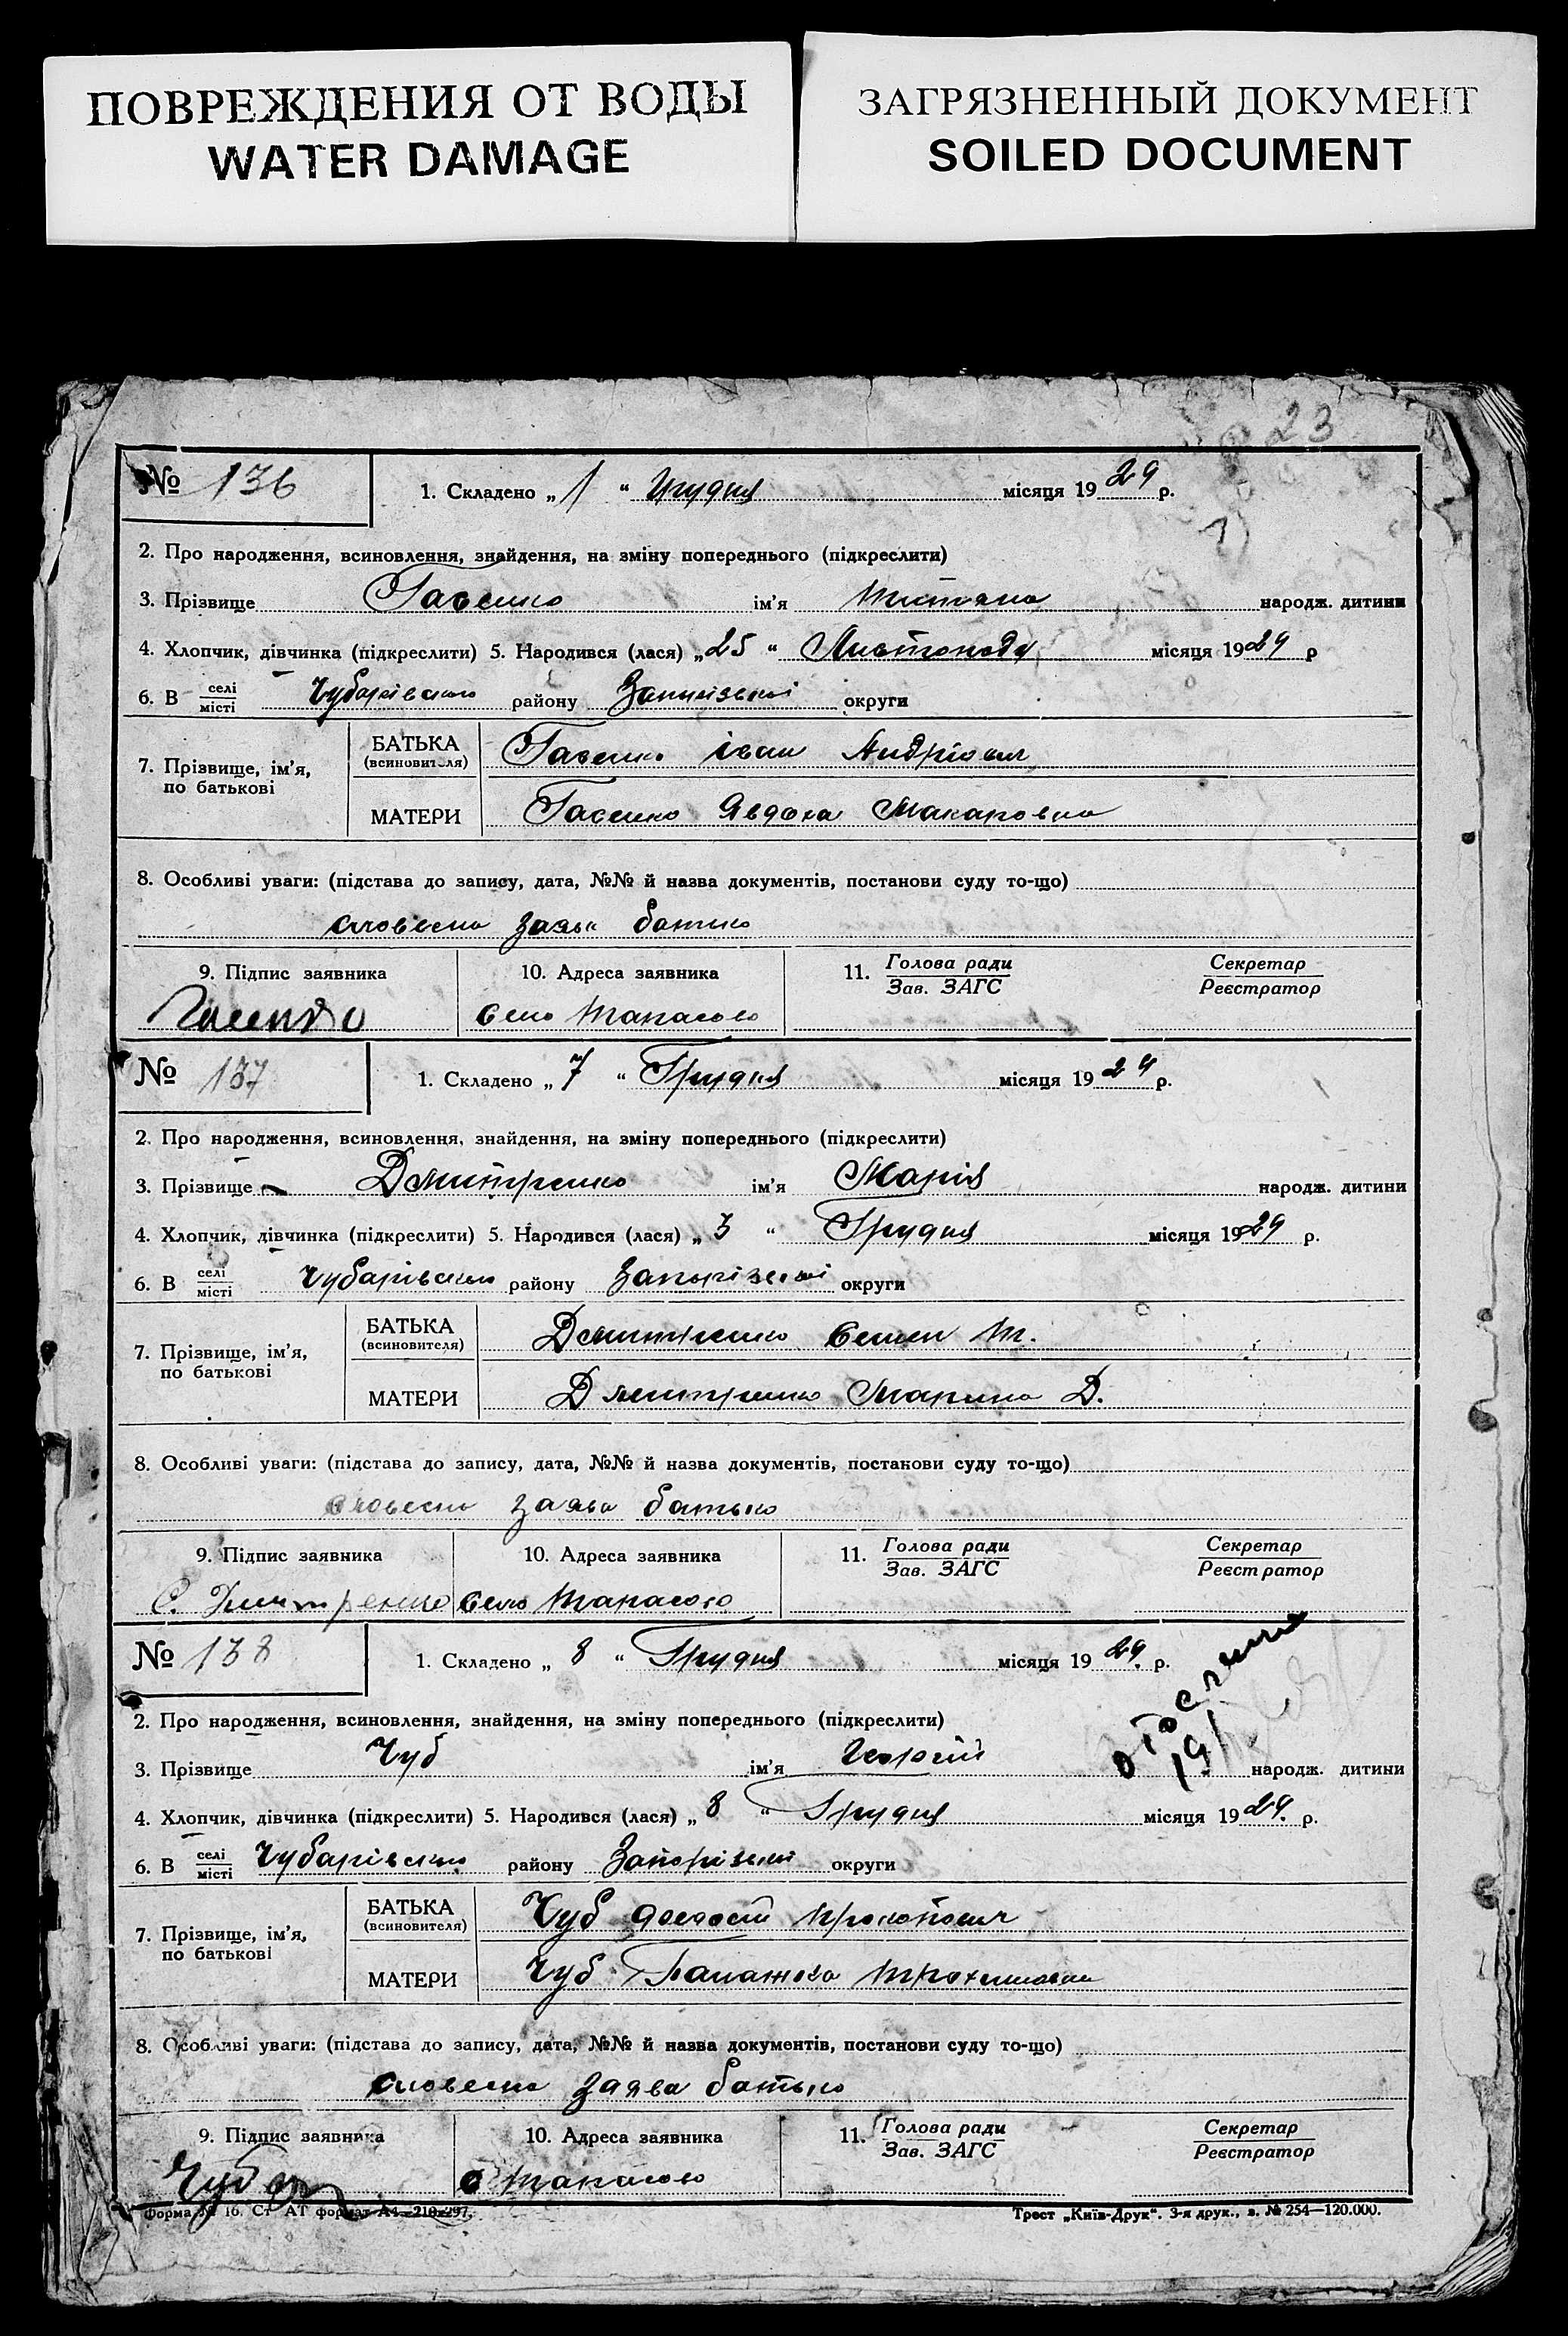 ПОВРЕЖДЕНИЯ ОТ ВОДЫ
WATER DAMAGE
ЗАГРЯЗНЕННЫЙ ДОКУМЕНТ
SOILED DOCUMENT
23
№ 136 1. Складено „ 1 “ Грудня місяця 1929 р.
2. Про народження, всиновлення, знайдення, на зміну попереднього (підкреслити)
3. Прізвище ім'я Титяна народж. дитини
4. Хлопчик, дівчинка (підкреслити) 5. Народився (лася) „ 25 “ Листопада місяця 1929 р
6. В селі/місті Чубарівсько району Запорізької округи
7. Прізвище, ім'я, по батькові
БАТЬКА (всиновителя) іван Андрієвич
МАТЕРИ Явдоха Макаровна
8. Особливі уваги: (підстава до запису, дата, №№ й назва документів, постанови суду то-що)
словесна заява батько
9. Підпис заявника 10. Адреса заявника 11. Голова ради/Зав. ЗАГС Секретар/Реєстратор
село
№ 137 1. Складено „ 7 “ Грудня місяця 1929 р.
2. Про народження, всиновлення, знайдення, на зміну попереднього (підкреслити)
3. Прізвище Дмитренко ім'я Марія народж. дитини
4. Хлопчик, дівчинка (підкреслити) 5. Народився (лася) „ 3 “ Грудня місяця 1929 р.
6. В селі/місті Чубарівсько району Запорізької округи
7. Прізвище, ім'я, по батькові
БАТЬКА (всиновителя) Дмитренко Семен Т.
МАТЕРИ Дмитренко Марина Д.
8. Особливі уваги: (підстава до запису, дата, №№ й назва документів, постанови суду то-що)
словесна заява батько
9. Підпис заявника 10. Адреса заявника 11. Голова ради/Зав. ЗАГС Секретар/Реєстратор
С. Дмитренко село
№ 138 1. Складено „ 8 “ Грудня місяця 1929. р.
2. Про народження, всиновлення, знайдення, на зміну попереднього (підкреслити)
3. Прізвище Чуб ім'я народж. дитини
4. Хлопчик, дівчинка (підкреслити) 5. Народився (лася) „ 8 “ Грудня місяця 1929. р.
6. В селі/місті Чубарівсько району Запорізької округи
7. Прізвище, ім'я, по батькові
БАТЬКА (всиновителя) Чуб Прокопович
МАТЕРИ Чуб Палажка Трохимовна
8. Особливі уваги: (підстава до запису, дата, №№ й назва документів, постанови суду то-що)
словесна заява батько
9. Підпис заявника 10. Адреса заявника 11. Голова ради/Зав. ЗАГС Секретар/Реєстратор
Форма № 16. Ст АТ формат А4—210×297.
Трест „Київ-Друк“. 3-я друк., з. № 254—120.000.